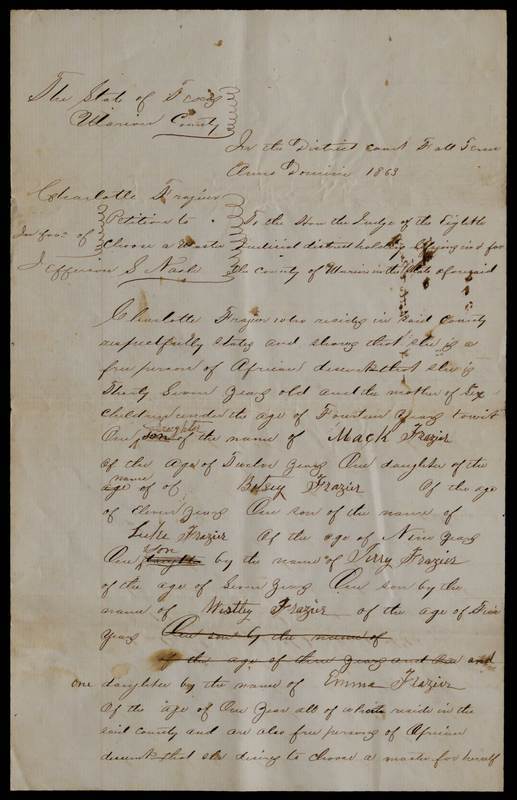 The State of Texas
Marion County
In the District court Fall Term
Anno Domini 1863
Charlotte Frazier
Petition to
In favr of
choose a Master
Jefferson S Nash
To the Hon the Judge of the Eighth
Judicial district holding in & for
the County of Marion in the State aforesaid
Charlotte Frazier who resides in said County
respectfully states and shows that she is a
free person of African descent that she is
Thirty Seven years old and the mother of Six
Children under the age of Fourteen years towit
daughter
One son of the name of Mack Frazier
of the age of Twelve years One daughter of the
name
age of of Betsey Frazier Of the age
of Eleven years One son of the name of
Luke Frazier Of the age of Nine years
son
One daughter by the name of Jerry Frazier
of the age of Seven years One son by the
name of Westley Frazier of the age of Five
years One son by the name of
of the age of three years and One and
one daughter by the name of Emma Frazier
Of the age of One year all of whom reside in the
said county and are also free persons of African
descent that she desires to choose a master for herself